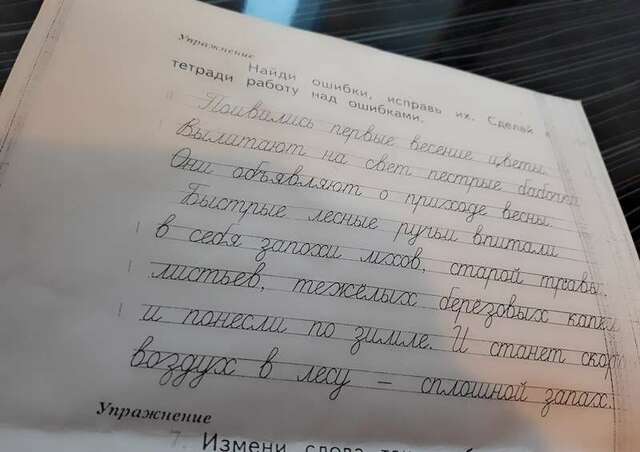 Упражнение
Найди ошибки, исправь их. Сделай в
тетради работу над ошибками.
Поивались первые весение цветы.
Вылатают на свет пестрые бабочки
Они объявляют о приходе весны.
Быстрые лесные ручьи впитали
в себя запохи мхов, старой травы,
листьев, тежёлых березовых капки
и понесли по зимле. И станет скоро
воздух в лесу – сплошной запах.
Упражнение
7. Измени слова